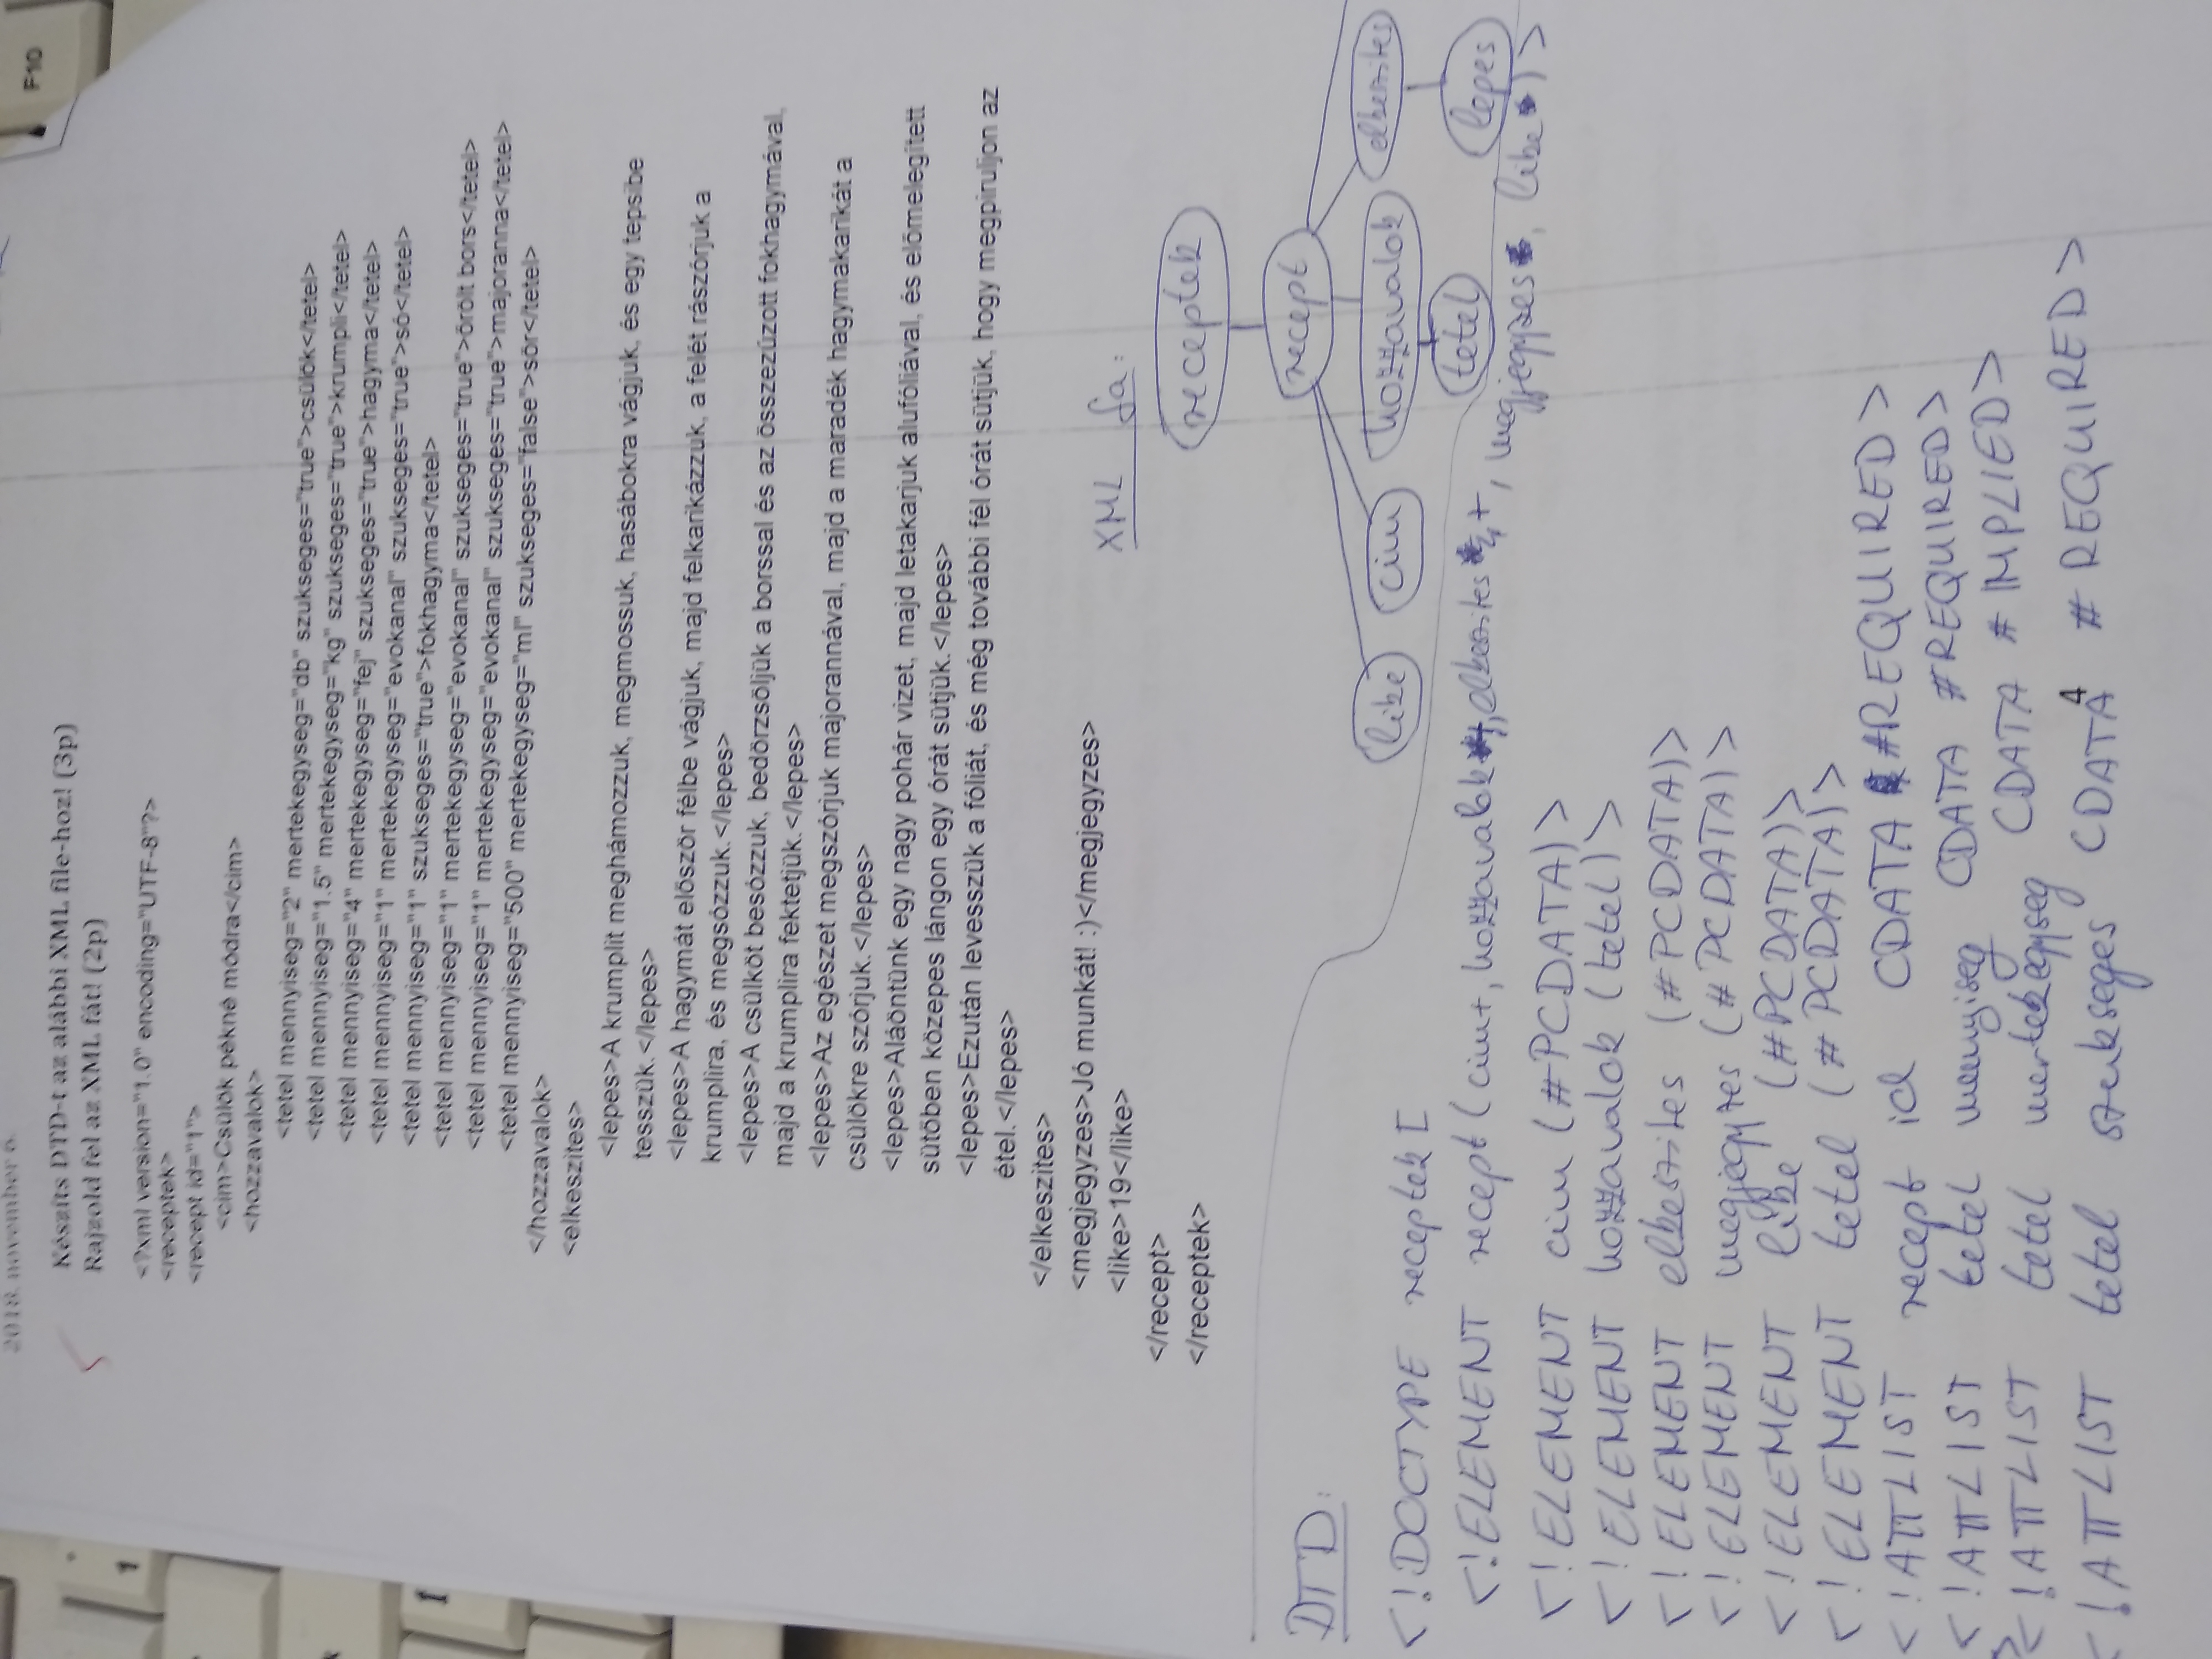 2018. november 6.
Készíts DTD-t az alábbi XML file-hoz! (3p)
Rajzold fel az XML fát! (2p)
<?xml version="1.0" encoding="UTF-8"?>
<receptek>
<recept id="1">
<cim>Csülök pékné módra</cim>
<hozzavalok>
<tetel mennyiseg="2" mertekegyseg="db" szukseges="true">csülök</tetel>
<tetel mennyiseg="1.5" mertekegyseg="kg" szukseges="true">krumpli</tetel>
<tetel mennyiseg="4" mertekegyseg="fej" szukseges="true">hagyma</tetel>
<tetel mennyiseg="1" mertekegyseg="evokanal" szukseges="true">só</tetel>
<tetel mennyiseg="1" szukseges="true">fokhagyma</tetel>
<tetel mennyiseg="1" mertekegyseg="evokanal" szukseges="true">őrölt bors</tetel>
<tetel mennyiseg="1" mertekegyseg="evokanal" szukseges="true">majoranna</tetel>
<tetel mennyiseg="500" mertekegyseg="ml" szukseges="false">sör</tetel>
</hozzavalok>
<elkeszites>
<lepes>A krumplit meghámozzuk, megmossuk, hasábokra vágjuk, és egy tepsibe
tesszük.</lepes>
<lepes>A hagymát először félbe vágjuk, majd felkarikázzuk, a felét rászórjuk a
krumplira, és megsózzuk.</lepes>
<lepes>A csülköt besózzuk, bedörzsöljük a borssal és az összezúzott fokhagymával,
majd a krumplira fektetjük.</lepes>
<lepes>Az egészet megszórjuk majorannával, majd a maradék hagymakarikát a
csülökre szórjuk.</lepes>
<lepes>Aláöntünk egy nagy pohár vizet, majd letakarjuk alufóliával, és előmelegített
sütőben közepes lángon egy órát sütjük.</lepes>
<lepes>Ezután levesszük a fóliát, és még további fél órát sütjük, hogy megpiruljon az
étel.</lepes>
</elkeszites>
<megjegyzes>Jó munkát! :)</megjegyzes>
<like>19</like>
</recept>
</receptek>
XML fa:
receptek
recept
like cim hozzavalok elkeszites
tetel lepes
DTD:
<!DOCTYPE receptek [
<!ELEMENT recept (cim+, hozzavalok, elkeszites+, megjegyzes, like)>
<!ELEMENT cim (#PCDATA)>
<!ELEMENT hozzavalok (tetel)>
<!ELEMENT elkeszites (#PCDATA)>
<!ELEMENT megjegyzes (#PCDATA)>
<!ELEMENT like (#PCDATA)>
<!ELEMENT tetel (#PCDATA)>
<!ATTLIST recept id CDATA #REQUIRED>
<!ATTLIST tetel mennyiseg CDATA #REQUIRED>
<!ATTLIST tetel mertekegyseg CDATA #IMPLIED>
<!ATTLIST tetel szukseges CDATA #REQUIRED>
4
F10
1